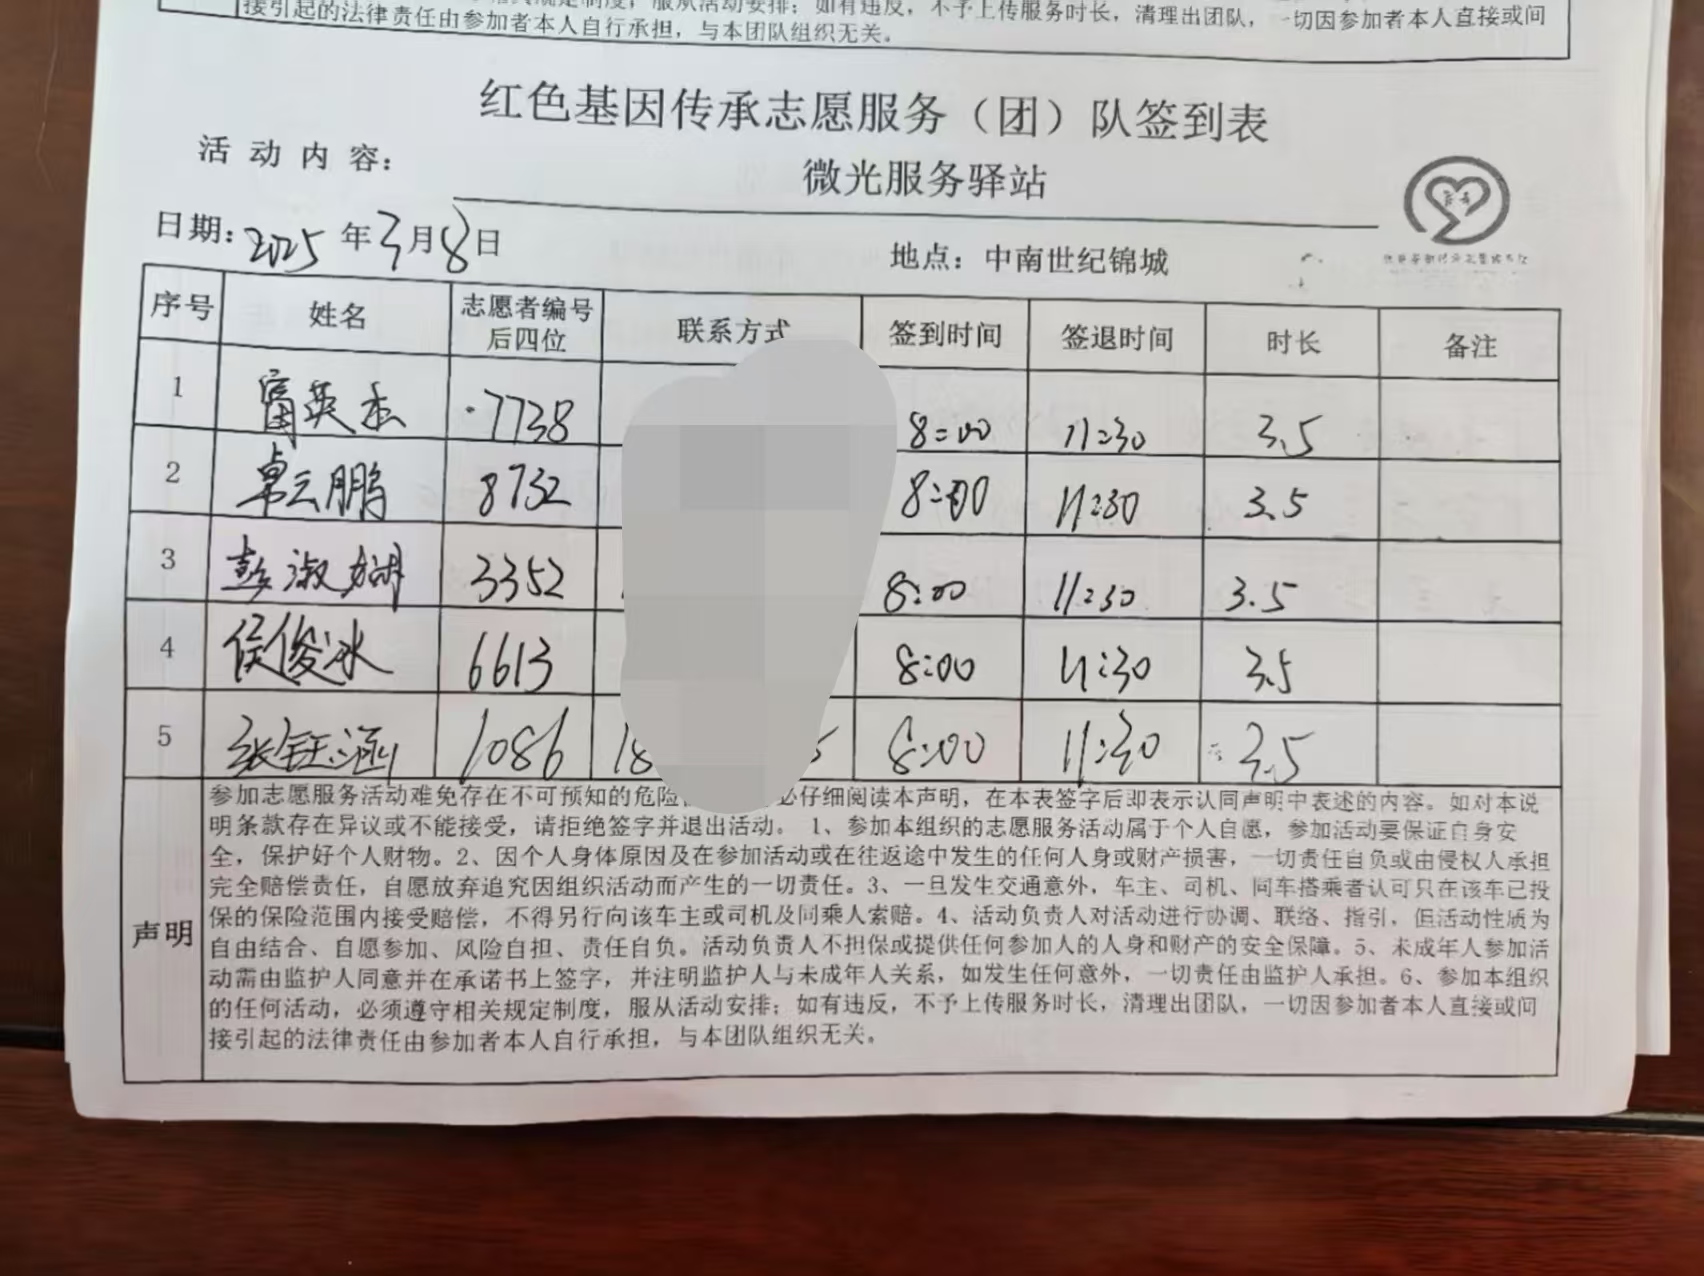 接引起的法律责任由参加者本人自行承担，与本团队组织无关。
服从活动安排；如有违反，不予上传服务时长，清理出团队，一切因参加者本人直接或间
红色基因传承志愿服务（团）队签到表
活动内容：
微光服务驿站
日期：2025年3月8日
地点：中南世纪锦城
序号 姓名 志愿者编号后四位 联系方式 签到时间 签退时间 时长 备注
1 富英杰 7738 8:00 11:30 3.5
2 卓云鹏 8732 8:00 11:30 3.5
3 彭淑娴 3352 8:00 11:30 3.5
4 侯俊冰 6613 8:00 11:30 3.5
5 张钰涵 1086 18 5 8:00 11:30 3.5
声明
参加志愿服务活动难免存在不可预知的危险 必仔细阅读本声明，在本表签字后即表示认同声明中表述的内容。如对本说
明条款存在异议或不能接受，请拒绝签字并退出活动。 1、参加本组织的志愿服务活动属于个人自愿，参加活动要保证自身安
全，保护好个人财物。2、因个人身体原因及在参加活动或在往返途中发生的任何人身或财产损害，一切责任自负或由侵权人承担
完全赔偿责任，自愿放弃追究因组织活动而产生的一切责任。3、一旦发生交通意外，车主、司机、同车搭乘者认可只在该车已投
保的保险范围内接受赔偿，不得另行向该车主或司机及同乘人索赔。4、活动负责人对活动进行协调、联络、指引，但活动性质为
自由结合、自愿参加、风险自担、责任自负。活动负责人不担保或提供任何参加人的人身和财产的安全保障。5、未成年人参加活
动需由监护人同意并在承诺书上签字，并注明监护人与未成年人关系，如发生任何意外，一切责任由监护人承担。6、参加本组织
的任何活动，必须遵守相关规定制度，服从活动安排；如有违反，不予上传服务时长，清理出团队，一切因参加者本人直接或间
接引起的法律责任由参加者本人自行承担，与本团队组织无关。